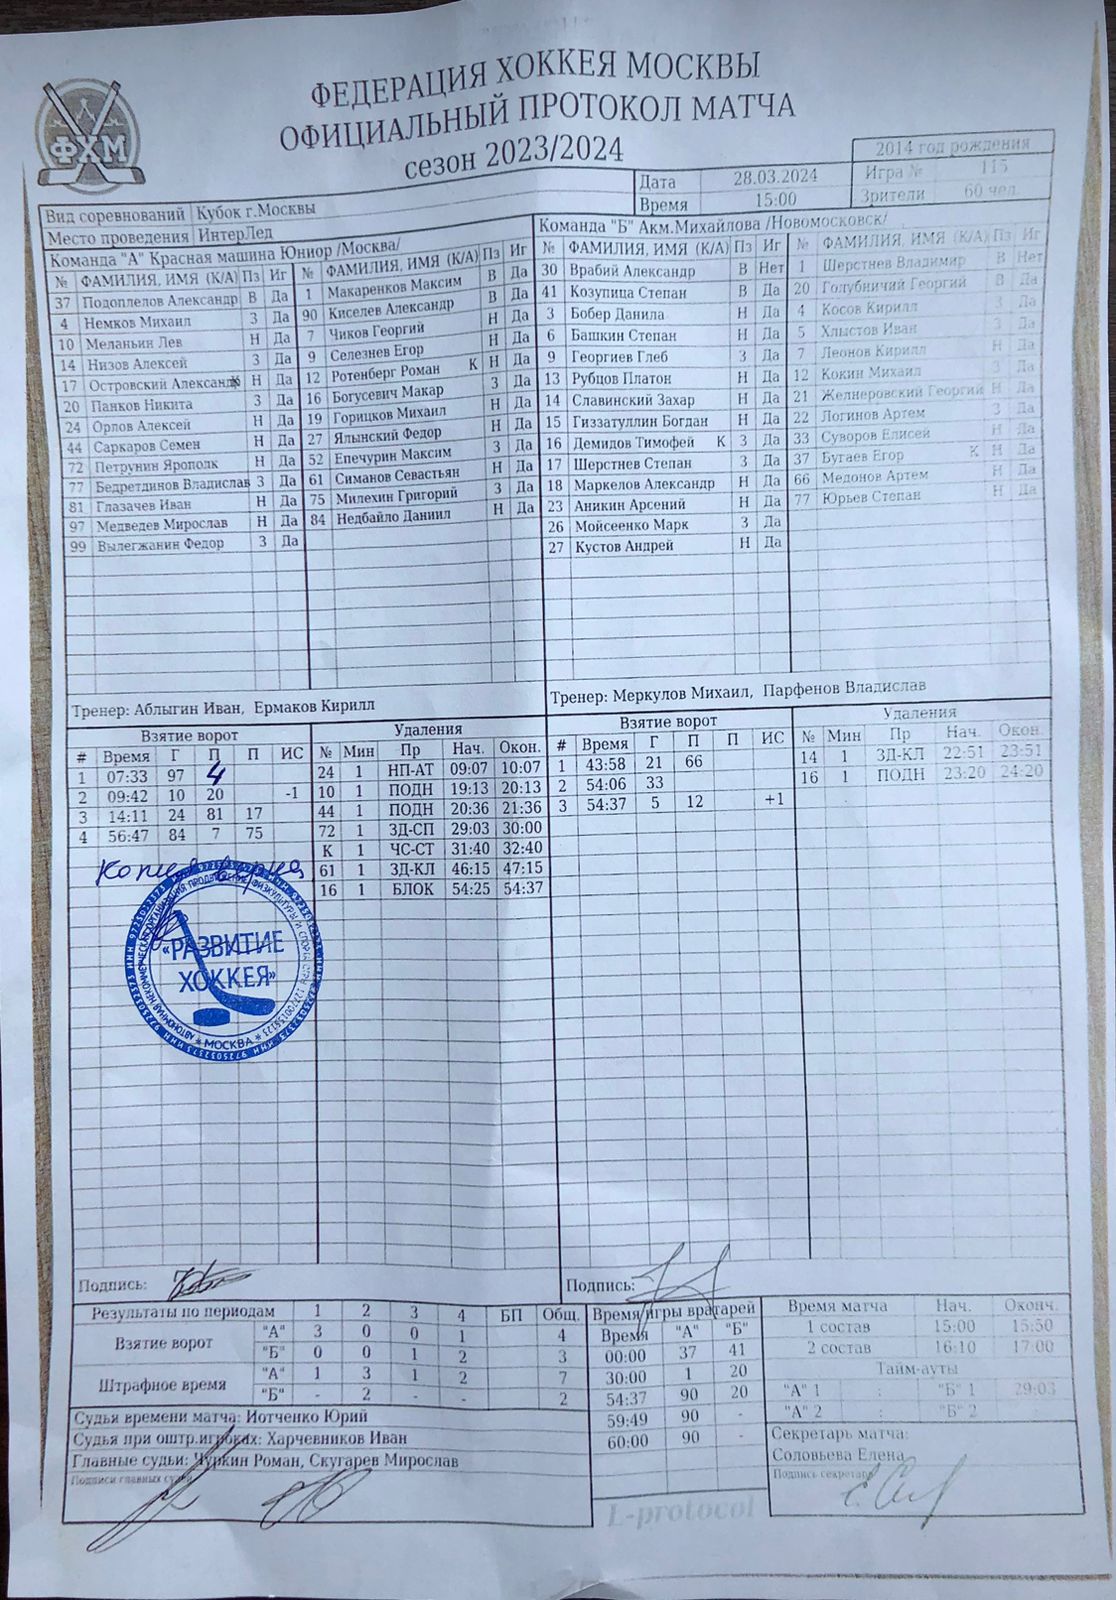 ФЕДЕРАЦИЯ ХОККЕЯ МОСКВЫ
ОФИЦИАЛЬНЫЙ ПРОТОКОЛ МАТЧА
сезон 2023/2024
ФХМ
2014 год рождения
Дата 28.03.2024 Игра № 115
Время 15:00 Зрители 60 чел.
Вид соревнований Кубок г.Москвы
Место проведения ИнтерЛед
Команда "А" Красная машина Юниор /Москва/
№ ФАМИЛИЯ, ИМЯ (К/А) Пз Иг № ФАМИЛИЯ, ИМЯ (К/А) Пз Иг
37 Подоплелов Александр В Да 1 Макаренков Максим В Да
4 Немков Михаил З Да 90 Киселев Александр В Да
10 Меланьин Лев Н Да 7 Чиков Георгий Н Да
14 Низов Алексей З Да 9 Селезнев Егор Н Да
17 Островский Александр К Н Да 12 Ротенберг Роман К Н Да
20 Панков Никита З Да 16 Богусевич Макар З Да
24 Орлов Алексей Н Да 19 Горицков Михаил Н Да
44 Саркаров Семен Н Да 27 Ялынский Федор Н Да
72 Петрунин Ярополк Н Да 52 Епечурин Максим З Да
77 Бедретдинов Владислав З Да 61 Симанов Севастьян Н Да
81 Глазачев Иван Н Да 75 Милехин Григорий З Да
97 Медведев Мирослав Н Да 84 Недбайло Даниил Н Да
99 Вылегжанин Федор З Да
Команда "Б" Акм.Михайлова /Новомосковск/
№ ФАМИЛИЯ, ИМЯ (К/А) Пз Иг № ФАМИЛИЯ, ИМЯ (К/А) Пз Иг
30 Врабий Александр В Нет 1 Шерстнев Владимир В Нет
41 Козупица Степан В Да 20 Голубничий Георгий В Да
3 Бобер Данила Н Да 4 Косов Кирилл З Да
6 Башкин Степан Н Да 5 Хлыстов Иван З Да
9 Георгиев Глеб З Да 7 Леонов Кирилл Н Да
13 Рубцов Платон Н Да 12 Кокин Михаил З Да
14 Славинский Захар Н Да 21 Желнеровский Георгий Н Да
15 Гиззатуллин Богдан Н Да 22 Логинов Артем З Да
16 Демидов Тимофей К З Да 33 Суворов Елисей Н Да
17 Шерстнев Степан З Да 37 Бугаев Егор К Н Да
18 Маркелов Александр Н Да 66 Медонов Артем Н Да
23 Аникин Арсений Н Да 77 Юрьев Степан Н Да
26 Мойсеенко Марк З Да
27 Кустов Андрей Н Да
Тренер: Аблыгин Иван, Ермаков Кирилл
Тренер: Меркулов Михаил, Парфенов Владислав
Взятие ворот Удаления
# Время Г П П ИС № Мин Пр Нач. Окон.
1 07:33 97 4 24 1 НП-АТ 09:07 10:07
2 09:42 10 20 -1 10 1 ПОДН 19:13 20:13
3 14:11 24 81 17 44 1 ПОДН 20:36 21:36
4 56:47 84 7 75 72 1 ЗД-СП 29:03 30:00
К 1 ЧС-СТ 31:40 32:40
61 1 ЗД-КЛ 46:15 47:15
16 1 БЛОК 54:25 54:37
Взятие ворот Удаления
# Время Г П П ИС № Мин Пр Нач. Окон.
1 43:58 21 66 14 1 ЗД-КЛ 22:51 23:51
2 54:06 33 16 1 ПОДН 23:20 24:20
3 54:37 5 12 +1
Копия верна
«РАЗВИТИЕ
ХОККЕЯ»
* МОСКВА *
Подпись:
Подпись:
Результаты по периодам 1 2 3 4 БП Общ.
Взятие ворот "А" 3 0 0 1 4
"Б" 0 0 1 2 3
Штрафное время "А" 1 3 1 2 7
"Б" - 2 - - 2
Судья времени матча: Иотченко Юрий
Судья при оштр.игроках: Харчевников Иван
Главные судьи: Чуркин Роман, Скугарев Мирослав
Подписи главных судей
Время игры вратарей
Время "А" "Б"
00:00 37 41
30:00 1 20
54:37 90 20
59:49 90 -
60:00 90 -
L-protocol
Время матча Нач. Оконч.
1 состав 15:00 15:50
2 состав 16:10 17:00
Тайм-ауты
"А" 1 : "Б" 1 29:03
"А" 2 : "Б" 2 :
Секретарь матча:
Соловьева Елена
Подпись секретаря